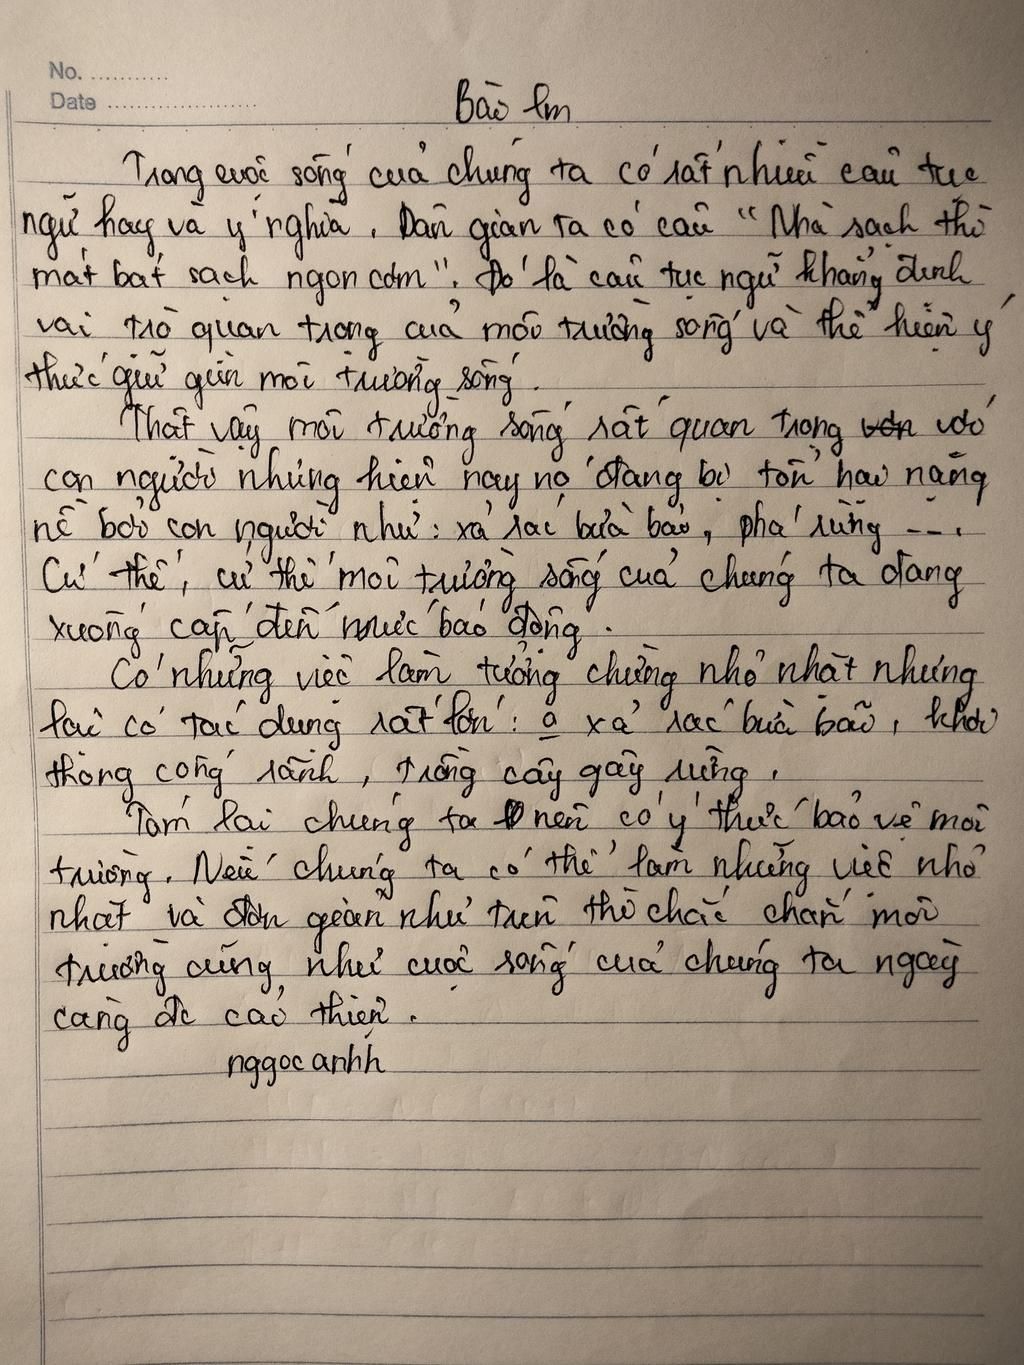 No. ...........
Date ......................
Bài làm
Trong cuộc sống của chúng ta có rất nhiều câu tục
ngữ hay và ý nghĩa. Dân gian ta có câu "Nhà sạch thì
mát bát sạch ngon cơm". Đó là câu tục ngữ khẳng định
vai trò quan trọng của môi trường sống và thể hiện ý
thức giữ gìn môi trường sống.
Thật vậy môi trường sống rất quan trọng với
con người nhưng hiện nay nó đang bị tổn hại nặng
nề bởi con người như: xả rác bừa bãi, phá rừng ---.
Cứ thế, cứ thế môi trường sống của chúng ta đang
xuống cấp đến mức báo động.
Có những việc làm tưởng chừng nhỏ nhặt nhưng
lại có tác dụng rất lớn: o xả rác bừa bãi, khơi
thông cống rãnh, trồng cây gây rừng.
Tóm lại chúng ta nên có ý thức bảo vệ môi
trường. Nếu chúng ta có thể làm những việc nhỏ
nhặt và đơn giản như trên thì chắc chắn môi
trường cũng như cuộc sống của chúng ta ngày
càng đc cải thiện.
nggoc anhh